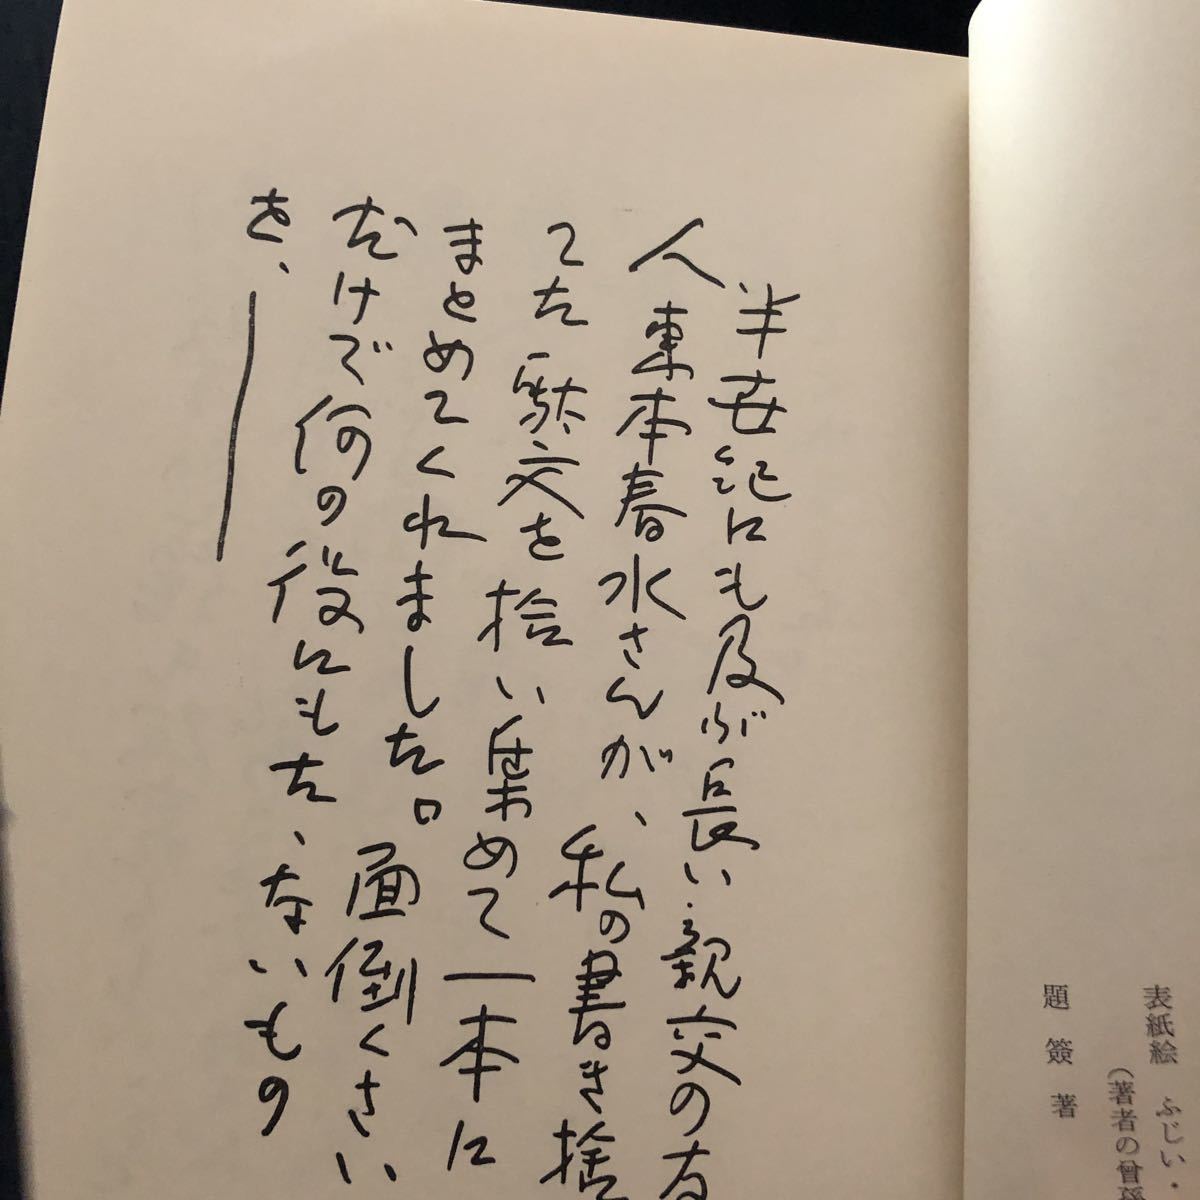 表紙絵 ふじい・
(著者の曾孫
題簽 著
半世紀にも及ぶ長い親交の友
人東本春水さんが、私の書き捨
てた駄文を拾い集めて一本に
まとめてくれました。面倒くさい
だけで何の役にもたゝないもの
を、――